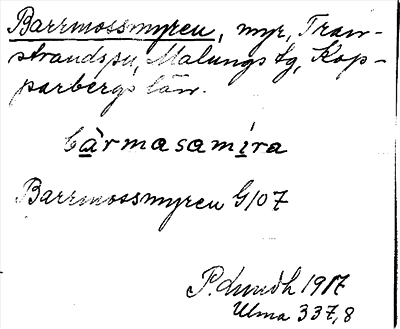 Barrmossmyren, myr, Tran-
strands sn, Malungs tg, Kop-
parbergs län.
bàrmasamìra
Barrmossmyren G107
P. Lundh 1917
Ulma 337,8